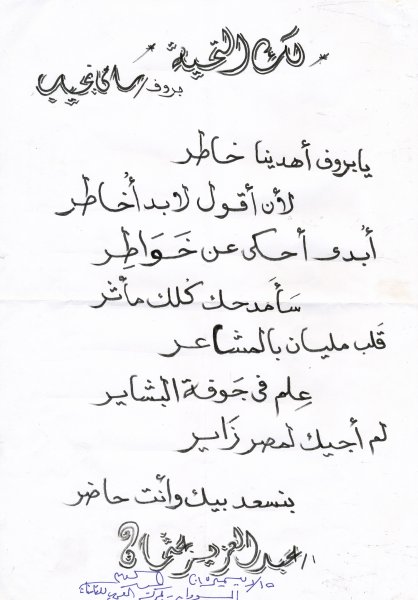 لك التحية
بروف/ سامي نجيب
يا بروف أهدينا خاطر
لأن أقول لابد أُخاطر
أُبدى أحكى عن خَوَاطِر
سَأمدحك كُلك مآثر
قَلب مليان بالمشاعر
عِلم فى جَوفة البشاير
لم أجيك لمصر زَاير
بنسعد بيك وأنت حاضر
أ/ عبد العزيز عثمان